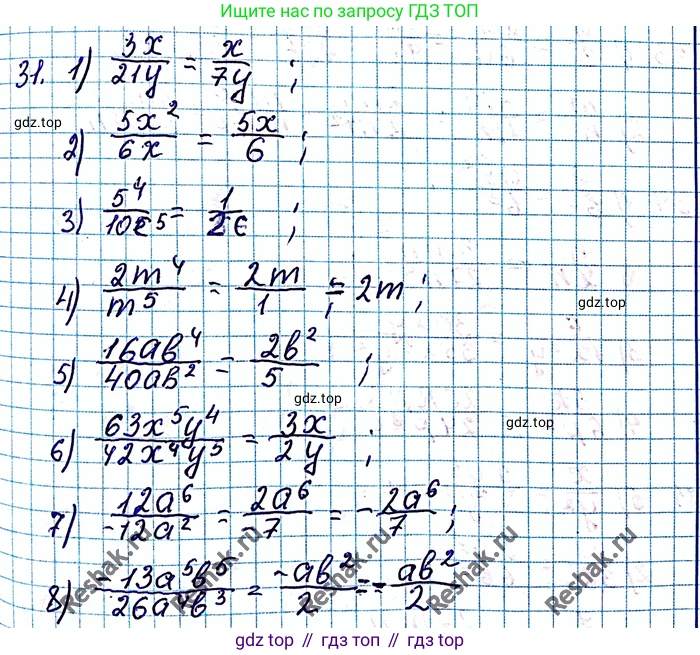 Ищите нас по запросу ГДЗ ТОП
31. 1) 3x/21y = x/7y ;
gdz.top
2) 5x²/6x = 5x/6 ;
3) 5⁴/10c⁵ = 1/2c ;
4) 2m⁴/m⁵ = 2m/1 = 2m ;
gdz.top
5) 16ab⁴/40ab² = 2b²/5 ;
gdz.top
6) 63x⁵y⁴/42x⁴y⁵ = 3x/2y ;
gdz.top
7) 12a⁶/-12a² = 2a⁶/-7 = -2a⁶/7 ;
8) -13a⁵b⁵/26a⁴b³ = -ab²/2 = -ab²/2
Reshak.ru
Reshak.ru
Reshak.ru
Reshak.ru
gdz top // гдз топ // gdz.top